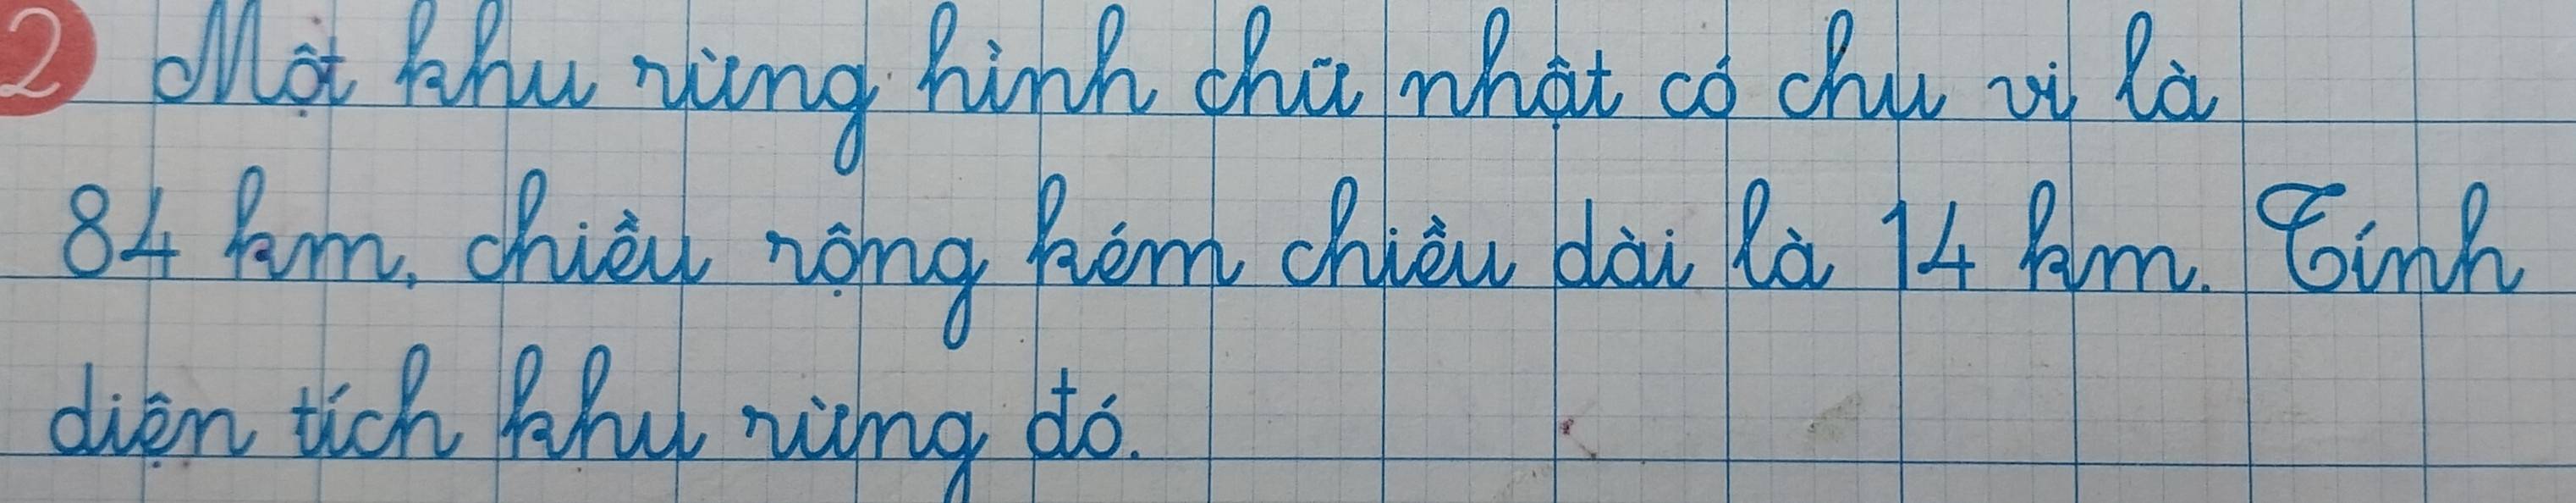 2 Một khu rừng hình chữ nhật có chu vi là
84 km, chiều rộng kém chiều dài là 14 km. Tính
diện tích khu rừng đó.